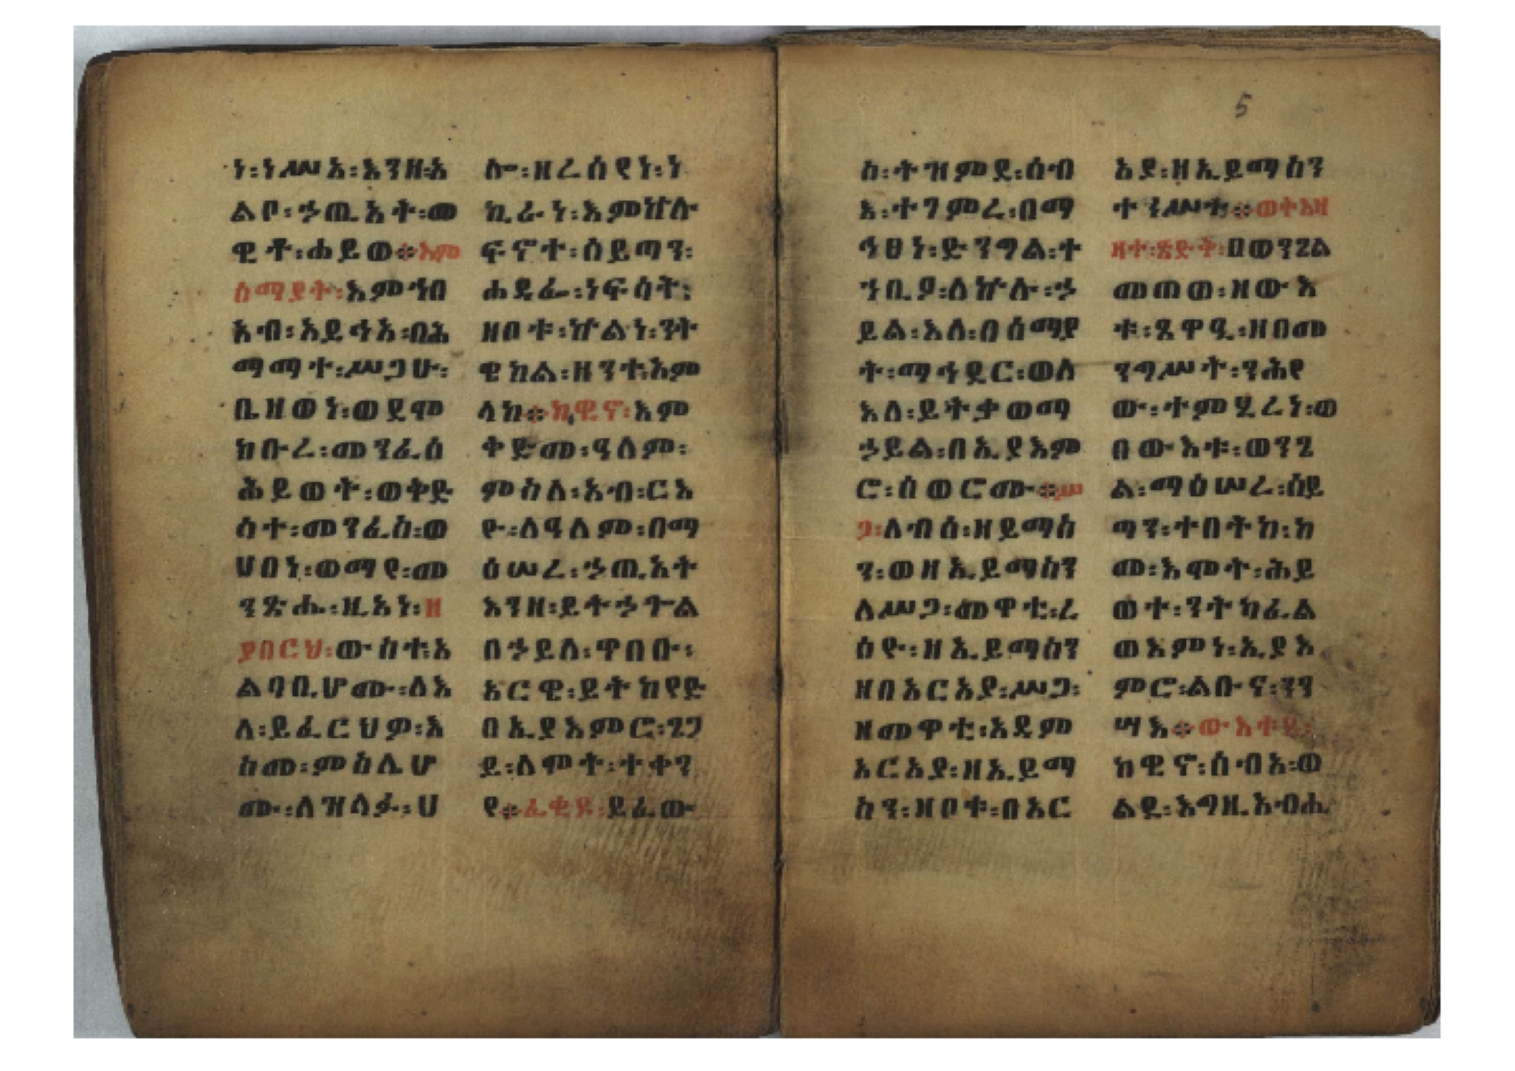 ነ፡ነሥአ፡እንዘ፡አ
ልቦ፡ኃጢአት፡ወ
ዊቶ፡ሐይወ።እም
ሰማያት፡እምኀበ
አብ፡አይኅአ፡በሕ
ማማተ፡ሥጋሁ፡
ቤዘወነ፡ወደሞ
ክቡረ፡መንፈሰ
ሕይወት፡ወቅድ
ሳተ፡መንፈስ፡ወ
ሀበነ፡ወማየ፡መ
ንጽሒ፡ዚአነ፡ዘ
ያበርህ፡ውስተ፡አ
ልባቢሆሙ፡ለእ
ለ፡ይፈርህዎ፡አ
ከመ፡ምስሌሆ
ሙ፡ለዝላፉ፡ሀ
ሎ፡ዘረሰየነ፡ነ
ኪራነ፡እምኵሉ
ፍኖተ፡ሰይጣን፡
ሐዲፈ፡ነፍሳት፡
ዘቦቱ፡ኵልነ፡ንት
ዌከል፡ዘንተ፡እም
ላክ።ክዊኖ፡እም
ቅድመ፡ዓለም፡
ምስለ፡አብ፡ርእ
ዮ፡ለዓለም፡በማ
ዕሠረ፡ኃጢአት
እንዘ፡ይትኃጐል
በኃይለ፡ዋበቡ፡
አርዌ፡ይትከየድ
በኢያእምሮ፡ንጋ
ይ፡ለሞት፡ተቀን
የ።ፈቂዶ፡ይፈው
ስ፡ትዝምደ፡ሰብ
እ፡ተገምረ፡በማ
ኅፀነ፡ድንግል፡ተ
ኀቢያ፡ለኵሉ፡ኃ
ይል፡እለ፡በሰማያ
ት፡ማኅደር፡ወለ
እለ፡ይትቃወማ
ኃይል፡በኢያእም
ሮ፡ሰወሮሙ።ሥ
ጋ፡ለብሰ፡ዘይማስ
ን፡ወዘኢይማስን
ለሥጋ፡መዋቲ፡ረ
ሰዮ፡ዘኢይማስን
ዘበአርአያ፡ሥጋ፡
ዘመዋቲ፡አዳም
አርአያ፡ዘኢይማ
ስን፡ዘቦቱ፡በአር
አያ፡ዘኢይማስን
ተንሥቱ።ወትእዛ
ዛተ፡ጽድቅ፡በወንጌል
መጠወ፡ዘውእ
ቱ፡ጼዋዒ፡ዘበመ
ንግሥት፡ንሕየ
ው፡ተምሂረነ፡ወ
በውእቱ፡ወንጌ
ል፡ማዕሠረ፡ሰይ
ጣን፡ተበትከ፡ከ
መ፡እሞት፡ሕይ
ወተ፡ንትካፈል
ወእምነ፡ኢያእ
ምሮ፡ልቡና፡ንን
ሣእ።ውእቱ፡
ከዊኖ፡ሰብአ፡ወ
ልዱ፡እግዚአብሔ